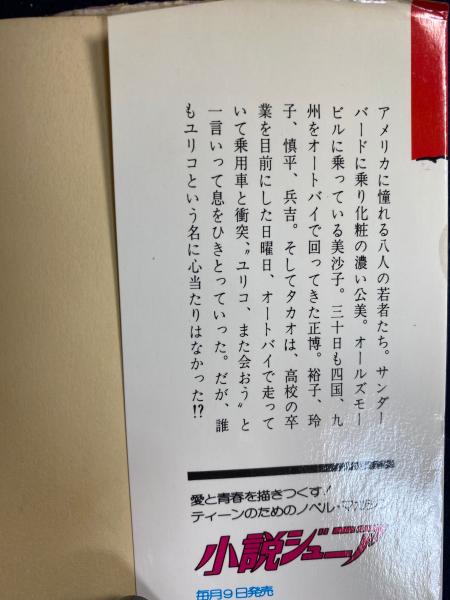 アメリカに憧れる八人の若者たち。サンダー
バードに乗り化粧の濃い公美。オールズモー
ビルに乗っている美沙子。三十日も四国、九
州をオートバイで回ってきた正博。裕子、玲
子、慎平、兵吉。そしてタカオは、高校の卒
業を目前にした日曜日、オートバイで走って
いて乗用車と衝突、〝ユリコ、また会おう〟と
一言いって息をひきとっていった。だが、誰
もユリコという名に心当たりはなかった!?
愛と青春を描きつくす!
ティーンのためのノベル・マガジン
小説ジュニア
毎月9日発売